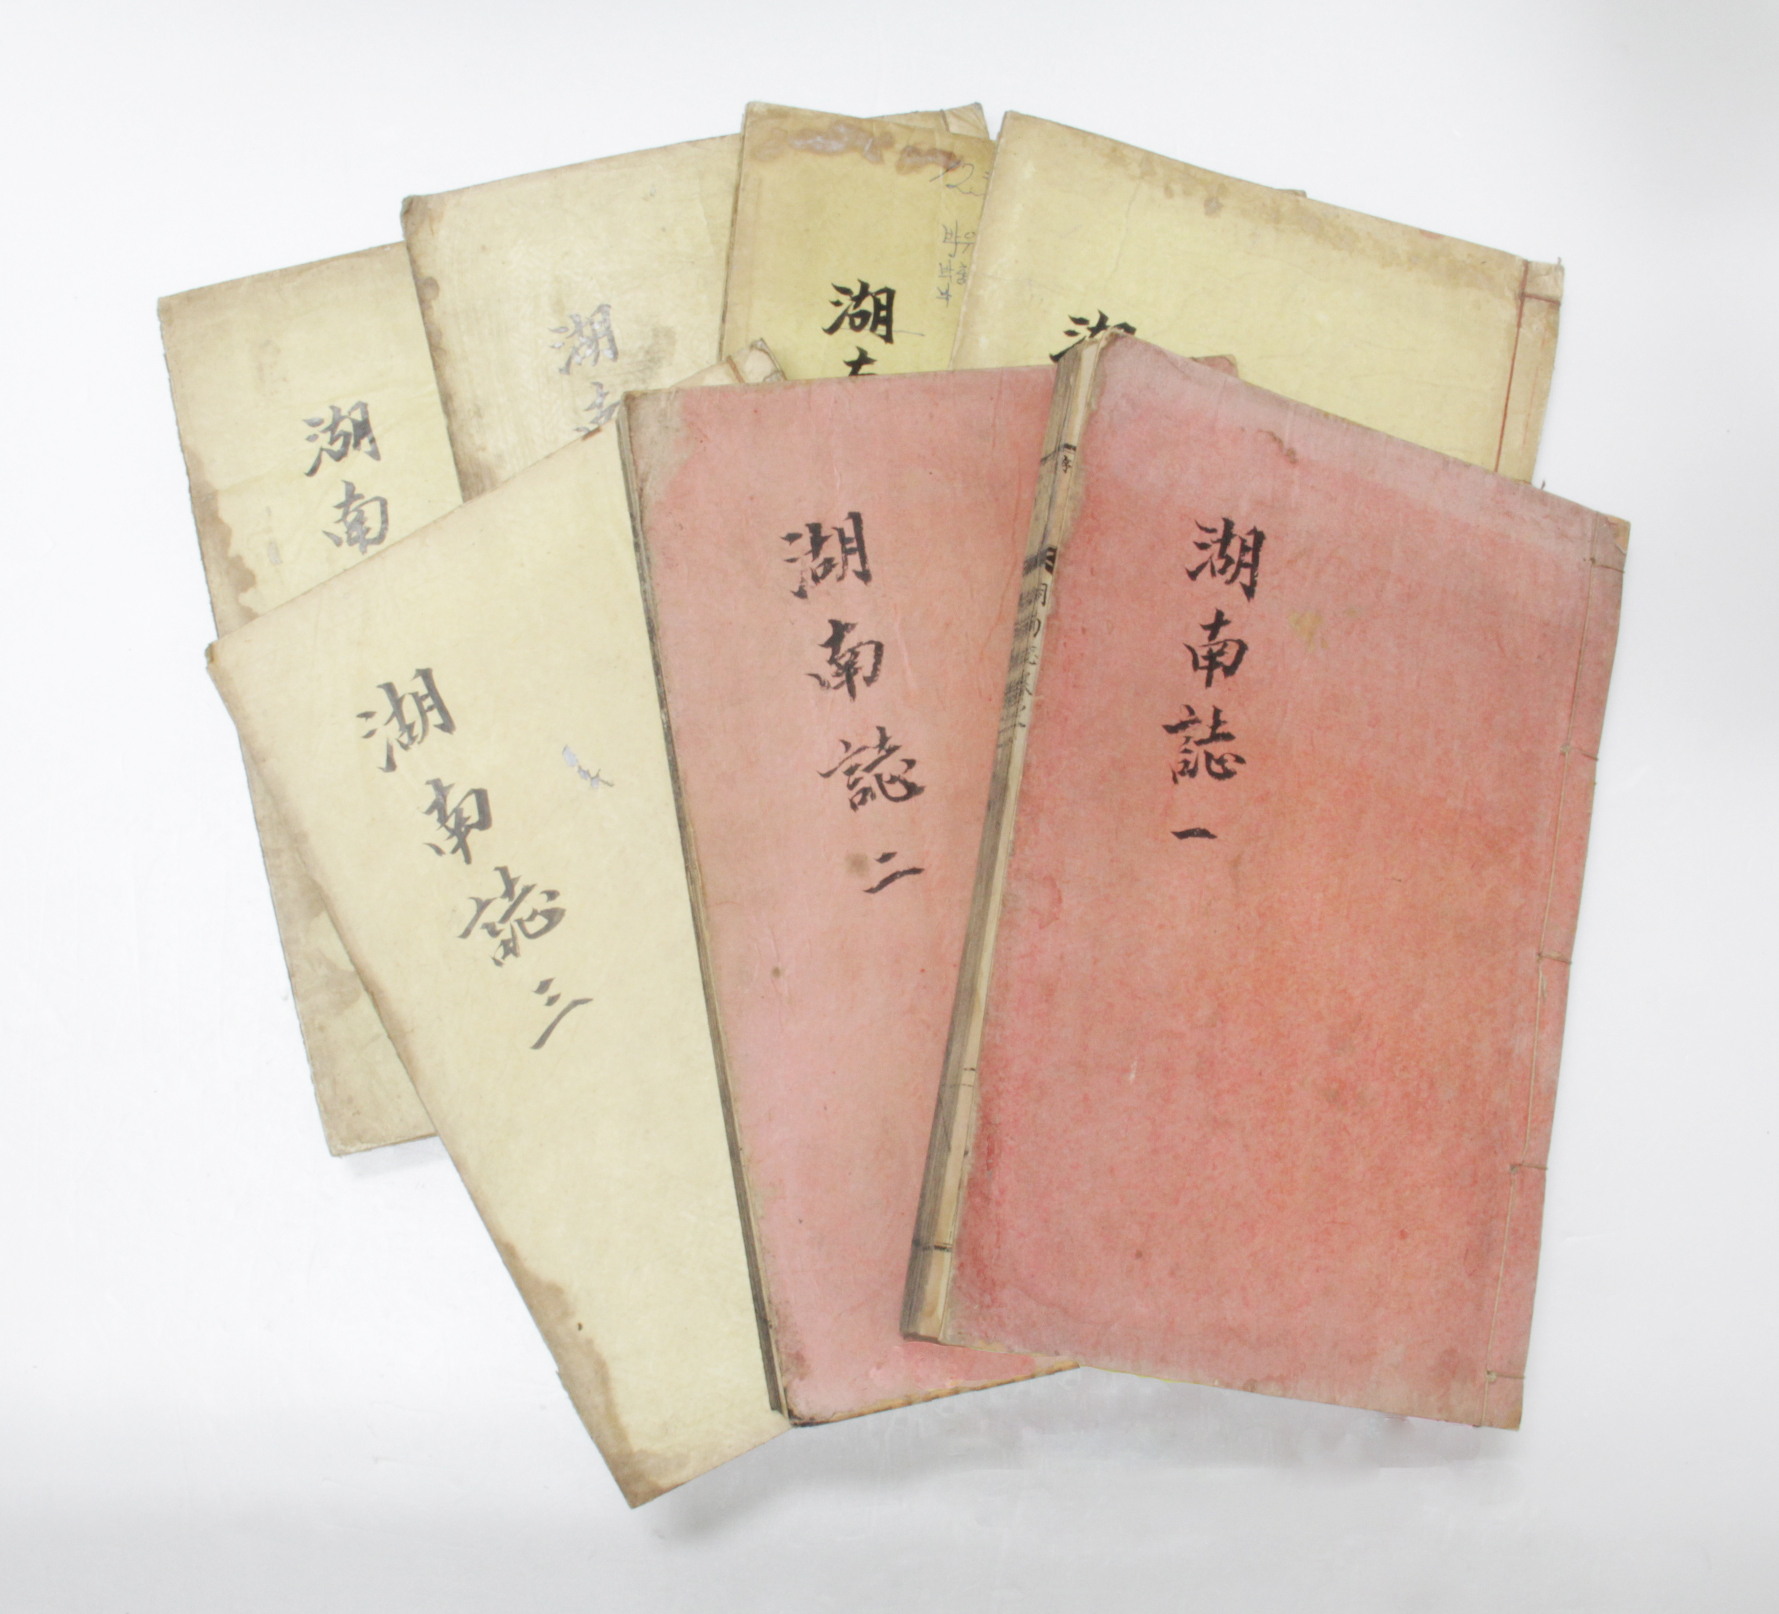 湖南誌一
湖南誌二
湖南誌三
湖南
湖南
湖南
湖